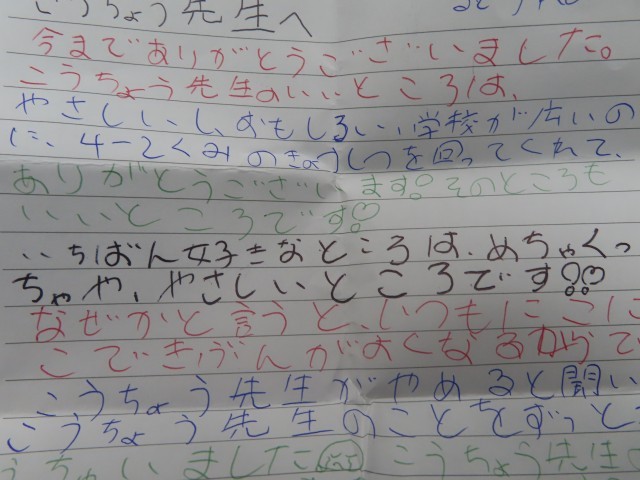 こうちょう先生へ
今までありがとうございました。
こうちょう先生のいいところは、
やさしいし、おもしろいし、学校が広いの
に、4-2くみのきょうしつを回ってくれて、
ありがとうございます。そのところも
いいところです。
いちばん好きなところは、めちゃくっ
ちゃや、やさしいところです
なぜかと言うと、いつもにこに
こできぶんがよくなるからで
こうちょう先生がやめると聞い
こうちょう先生のことをずっと
うちゃいました こうちょう先生